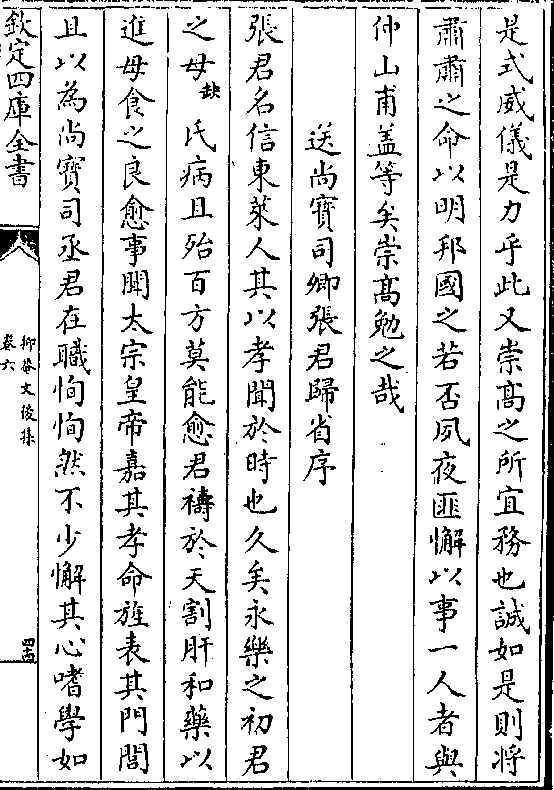 是式威儀是力乎此又崇髙之所宜務也誠如是則將
肅肅之命以明邦國之若否夙夜匪懈以事一人者與
仲山甫蓋等矣崇髙勉之哉
送尚寶司卿張君歸省序
張君名信東萊人其以孝聞於時也久矣永樂之初君
之母缺氏病且殆百方莫能愈君禱於天割肝和藥以
進母食之良愈事聞太宗皇帝嘉其孝命旌表其門閭
且以為尚寶司丞君在職恂恂然不少懈其心嗜學如
欽定四庫全書
抑菴文後集
卷六